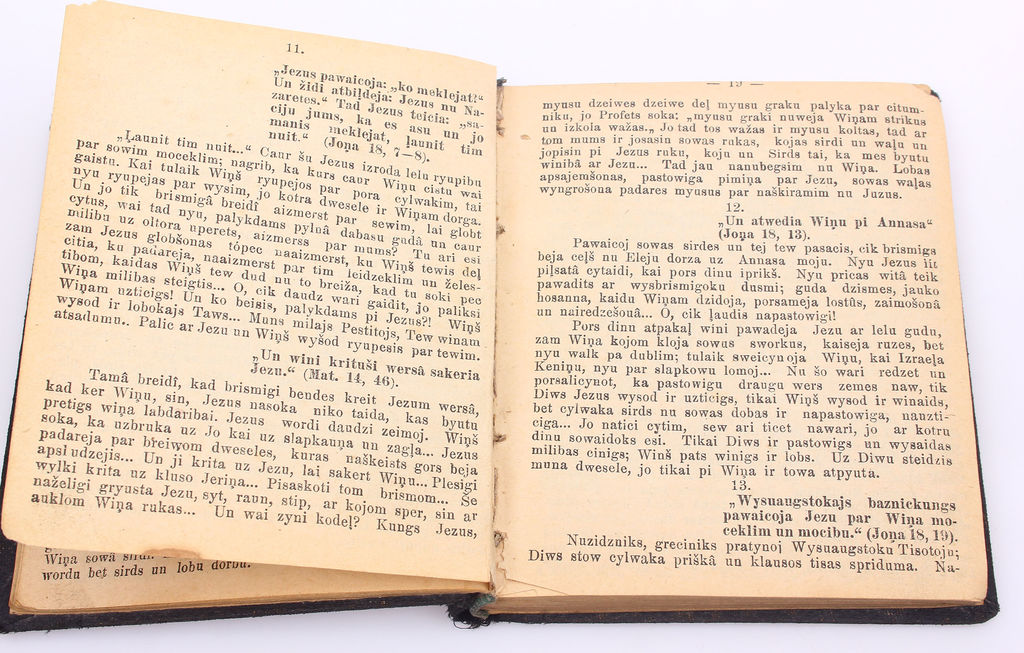 11.
„Jezus pawaicoja: „ko meklejat?“
Un židi atbiļdeja: Jezus nu Na-
zaretes.“ Tad Jezus teicia: „sa-
ciju jums, ka es asu un jo
manis meklejat, ļaunit tim
nuit.“ (Joņa 18, 7—8).
„Ļaunit tim nuit...“ Caur šu Jezus izroda lelu ryupibu
par sowim moceklim; nagrib, ka kurs caur Wiņu cistu wai
gaistu. Kai tulaik Wiņš ryupejos par pora cylwakim, tai
nyu ryupejas par wysim, jo kotra dwesele ir Wiņam dorga.
Un jo tik brismigâ breidî aizmerst par sewim, lai globt
cytus, wai tad nyu, palykdams pylnâ dabasu gudâ un caur
milibu uz oltora uperets, aizmerss par mums? Tu ari esi
zam Jezus globšonas tôpec naaizmerst, ku Wiņš tewis deļ
citia, ku padareja, naaizmerst par tim leidzeklim un želes-
tibom, kaidas Wiņš tew dud nu to breiža, kad tu soki pec
Wiņa milibas steigtis... O, cik daudz wari gaidit, jo paliksi
Wiņam uzticigs! Un ko beisis, palykdams pi Jezus?! Wiņš
wysod ir lobokajs Taws... Muns milajs Pestitojs, Tew winam
atsadumu.. Palic ar Jezu un Wiņš wyšod ryupesis par tewim.
„Un wini krituši wersâ sakeria
Jezu.“ (Mat. 14, 46).
Tamâ breidî, kad brismigi bendes kreit Jezum wersâ,
kad ker Wiņu, sin, Jezus nasoka niko taida, kas byutu
pretigs wiņa labdaribai. Jezus wordi daudzi zeimoj. Wiņš
soka, ka uzbruka uz Jo kai uz slapkauņa un zagļa... Jezus
padareja par breiwom dweseles, kuras naškeists gors beja
apsludzejis... Un ji krita uz Jezu, lai sakert Wiņu... Plesigi
wylki krita uz kluso Jeriņa... Pisaskoti tom brismom... Še
naželigi gryusta Jezu, syt, raun, stip, ar kojom sper, sin ar
auklom Wiņa rukas... Un wai zyni kodeļ? Kungs Jezus,
Wiņa sowâ sirdi.
wordu bet sirds un lobu dorbu.
— 19 —
myusu dzeiwes dzeiwe deļ myusu graku palyka par citum-
niku, jo Profets soka: „myusu graki nuweja Wiņam strikus
un izkola ważas.„ Jo tad tos ważas ir myusu koltas, tad ar
tom mums ir josasin sowas rukas, kojas sirdi un waļu un
jopisin pi Jezus ruku, koju un Sirds tai, ka mes byutu
winibâ ar Jezu... Tad jau nanubegsim nu Wiņa. Lobas
apsajemšonas, pastowiga pimiņa par Jezu, sowas waļas
wyngrošona padares myusus par naškiramim nu Juzus.
12.
„Un atwedia Wiņu pi Annasa“
(Joņa 18, 13).
Pawaicoj sowas sirdes un tej tew pasacis, cik brismigs
beja ceļš nu Eleju dorza uz Annasa moju. Nyu Jezus iit
piļsatâ cytaidi, kai pors dinu iprikš. Nyu pricas witâ teik
pawadits ar wysbrismigoku dusmi; guda dzismes, jauko
hosanna, kaidu Wiņam dzidoja, porsameja lostûs, zaimošonâ
un nairedzešouâ... O, cik ļaudis napastowigi!
Pors dinu atpakaļ wini pawadeja Jezu ar lelu gudu,
zam Wiņa kojom kloja sowas sworkus, kaiseja ruzes, bet
nyu walk pa dublim; tulaik sweicynoja Wiņu, kai Izraeļa
Keniņu, nyu par slapkowu lomoj... Nu šo wari redzet un
porsalicynot, ka pastowigu draugu wers zemes naw, tik
Diws Jezus wysod ir uzticigs, tikai Wiņš wysod ir winaids,
bet cylwaka sirds nu sowas dobas ir napastowiga, nauzti-
ciga... Jo natici cytim, sew ari ticet nawari, jo ar kotru
dinu sowaidoks esi. Tikai Diws ir pastowigs un wysaidas
milibas cinigs; Winš pats winigs ir lobs. Uz Diwu steidzis
muna dwesele, jo tikai pi Wiņa ir towa atpyuta.
13.
„Wysuaugstokajs baznickungs
pawaicoja Jezu par Wiņa mo-
ceklim un mocibu.“ (Joņa 18, 19).
Nuzidzniks, greciniks pratynoj Wysuaugstoku Tisotoju;
Diws stow cylwaka priškâ un klausos tisas spriduma. Na-